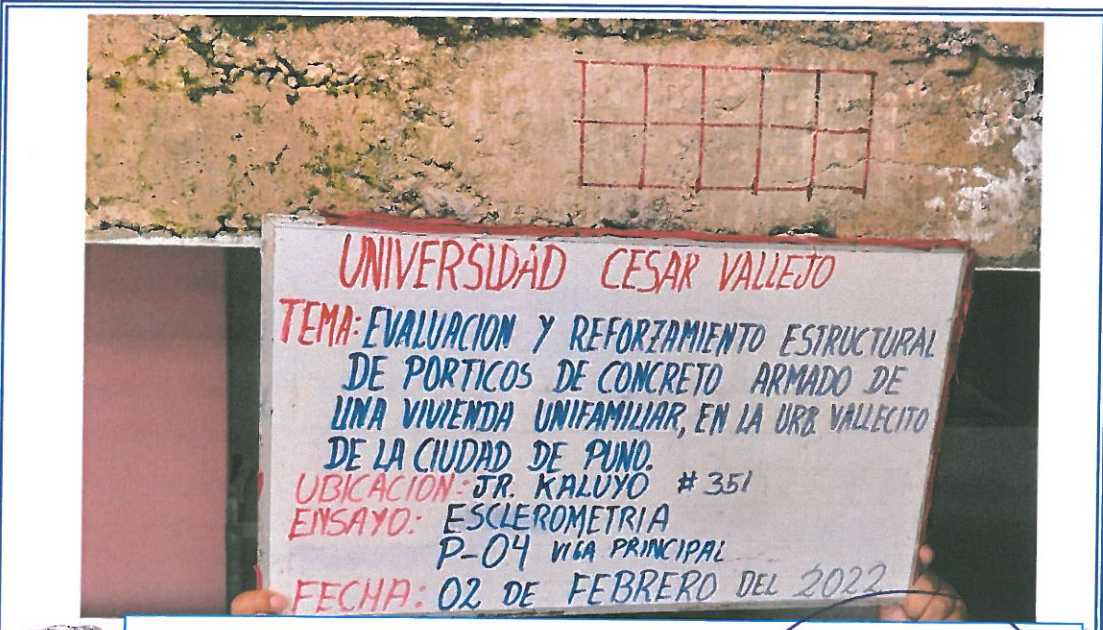 UNIVERSIDAD CESAR VALLEJO
TEMA: EVALUACION Y REFORZAMIENTO ESTRUCTURAL
DE PORTICOS DE CONCRETO ARMADO DE
UNA VIVIENDA UNIFAMILIAR, EN LA URB. VALLECITO
DE LA CIUDAD DE PUNO.
UBICACION: JR. KALUYO # 351
ENSAYO: ESCLEROMETRIA
P-04 VIGA PRINCIPAL
FECHA: 02 DE FEBRERO DEL 2022